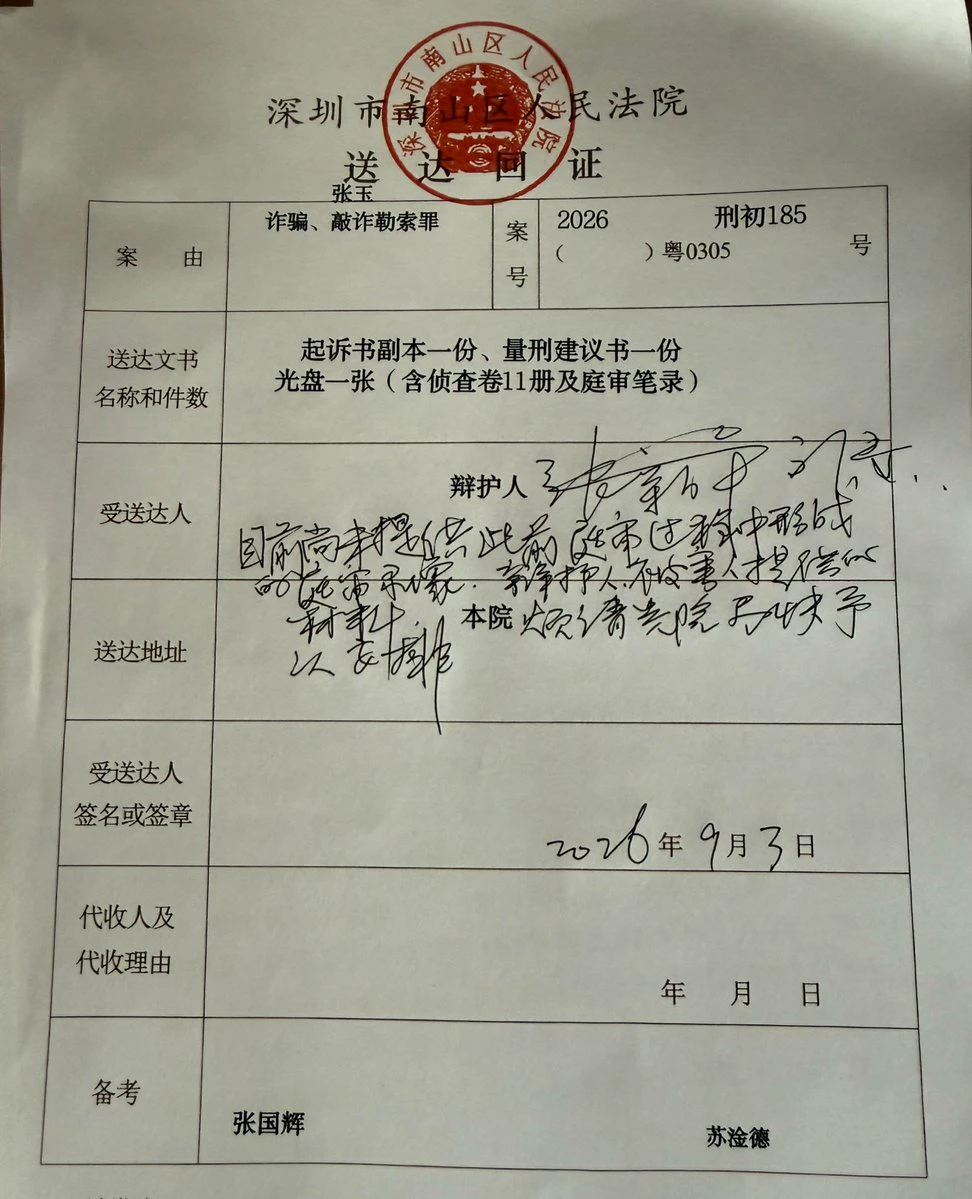 深圳市南山区人民法院
深圳市南山区人民法院
送达回证
张玉
案由
诈骗、敲诈勒索罪
案号
2026 刑初185
（ ）粤0305 号
送达文书
名称和件数
起诉书副本一份、量刑建议书一份
光盘一张（含侦查卷11册及庭审笔录）
受送达人
辩护人
目前尚未提供此前庭审过程中形成
的庭审录像、辩护人、被害人提供的
材料.
送达地址
本院
烦请贵院尽快予
以安排
受送达人
签名或签章
2026年9月3日
代收人及
代收理由
年 月 日
备考
张国辉
苏淦德